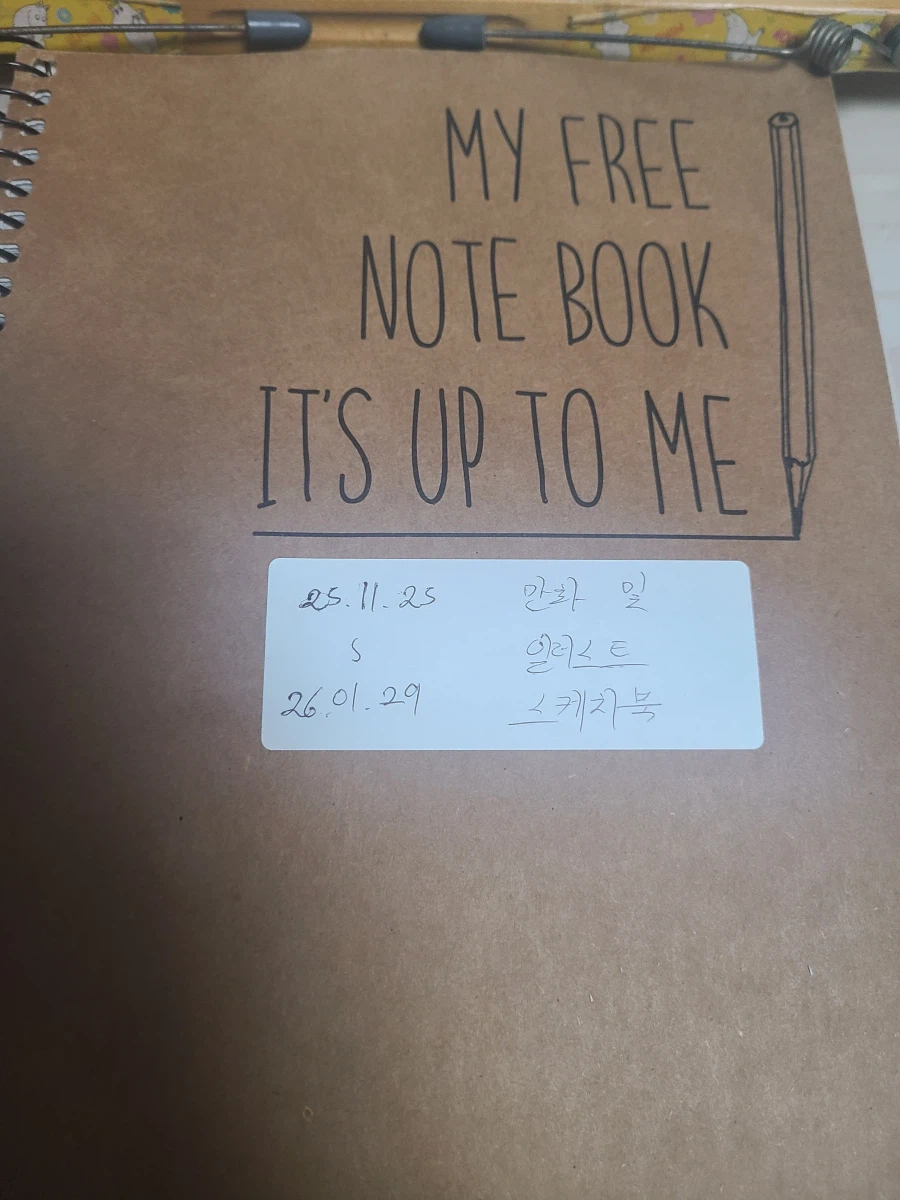 MY FREE
NOTE BOOK
IT'S UP TO ME
25.11.25 만화 일
S 일러스트
26.01.29 스케치북